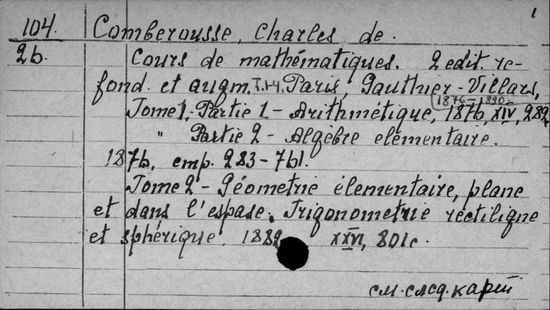 1
104. Comberousse, Charles de.
2b. Cours de mathématiques. 2 edit. re-
fond. et augm. T.1-4. Paris, Gauthier-Villars,
1876-1890.
Tome 1, Partie 1 - Arithmétique, 1876, XIV, 282
" Partie 2 - Algèbre elementaire.
1876, cmp. 283-761.
Tome 2 - Géometrie élementaire, plane
et dans l'espase. Trigonometrie rectiligne
et sphérique. 1882 XXVI, 801 c.
см. след. карт